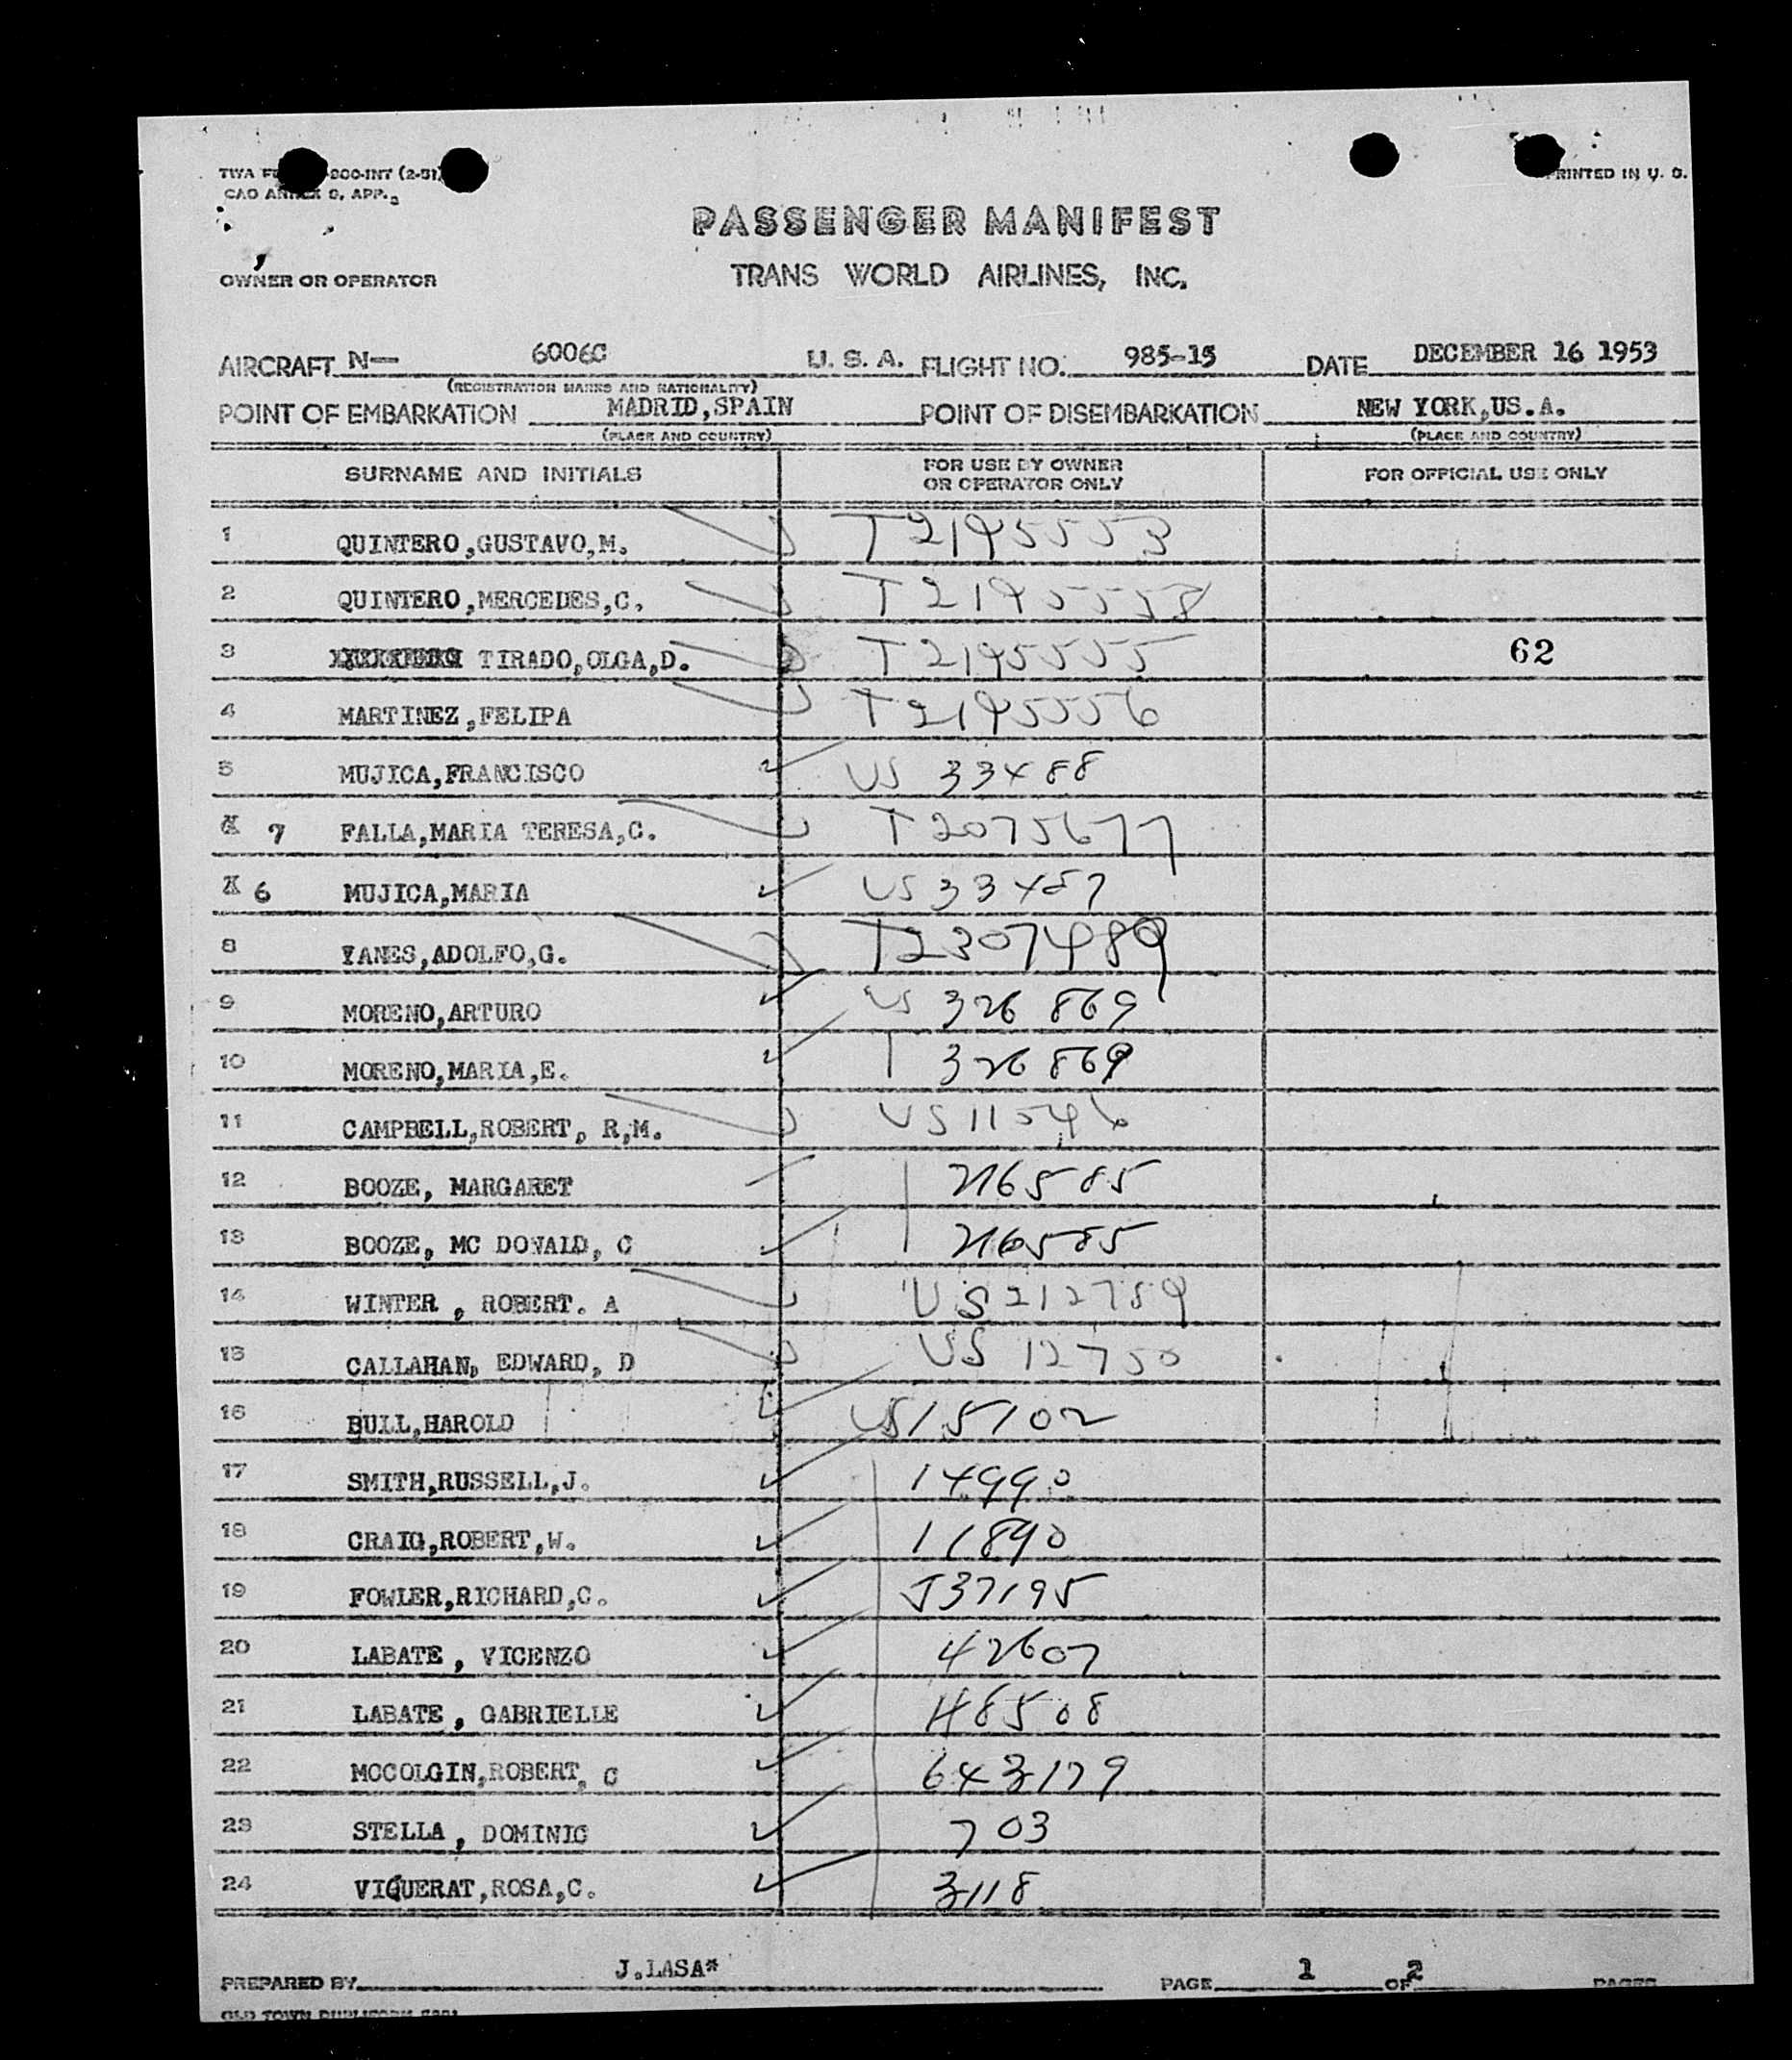 TWA F -800-INT (2-51)
PRINTED IN U. S.
PASSENGER MANIFEST
OWNER OR OPERATOR TRANS WORLD AIRLINES, INC.
AIRCRAFT N— 6006C U. S. A. FLIGHT NO. 985-15 DATE DECEMBER 16 1953
(REGISTRATION MARKS AND NATIONALITY)
POINT OF EMBARKATION MADRID,SPAIN POINT OF DISEMBARKATION NEW YORK,US.A.
(PLACE AND COUNTRY) (PLACE AND COUNTRY)
SURNAME AND INITIALS FOR USE BY OWNER OR OPERATOR ONLY FOR OFFICIAL USE ONLY
1 QUINTERO,GUSTAVO,M. T2195553
2 QUINTERO,MERCEDES,C. T2195558
3 TIRADO,OLGA,D. T2195555 62
4 MARTINEZ,FELIPA T2195556
5 MUJICA,FRANCISCO US 33488
7 FALLA,MARIA TERESA,C. T2075677
6 MUJICA,MARIA US 33487
8 YANES,ADOLFO,G. T2307489
9 MORENO,ARTURO US 326 869
10 MORENO,MARIA,E. 326 869
11 CAMPBELL,ROBERT, R,M. US 11546
12 BOOZE, MARGARET 216585
13 BOOZE, MC DONALD, C 216585
14 WINTER , ROBERT. A US 212759
15 CALLAHAN, EDWARD, D US 12750
16 BULL,HAROLD US 15102
17 SMITH,RUSSELL,J. 14990
18 CRAIG,ROBERT,W. 11890
19 FOWLER,RICHARD,C. J37195
20 LABATE , VICENZO 42607
21 LABATE , GABRIELLE 48508
22 MCCOLGIN,ROBERT, C 643179
23 STELLA , DOMINIC 703
24 VIQUERAT,ROSA,C. 3118
PREPARED BY J.LASA* PAGE 1 OF 2 PAGES